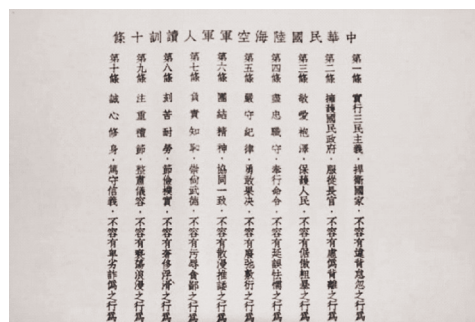 中華民國陸海空軍軍人讀訓十條
第一條 實行三民主義，捍衛國家，不容有違背怠忽之行爲
第二條 擁護國民政府，服從長官，不容有虛僞背離之行爲
第三條 敬愛袍澤，保護人民，不容有倨傲粗暴之行爲
第四條 盡忠職守，奉行命令，不容有延誤怯懦之行爲
第五條 嚴守紀律，勇敢果决，不容有廢弛敷衍之行爲
第六條 團結精神，協同一致，不容有散漫推諉之行爲
第七條 負責知恥，崇尚武德，不容有污辱貪鄙之行爲
第八條 刻苦耐勞，節儉樸實，不容有奢侈浮滑之行爲
第九條 注重禮節，整肅儀容，不容有褻蕩浪漫之行爲
第十條 誠心修身，篤守信義，不容有卑劣詐僞之行爲